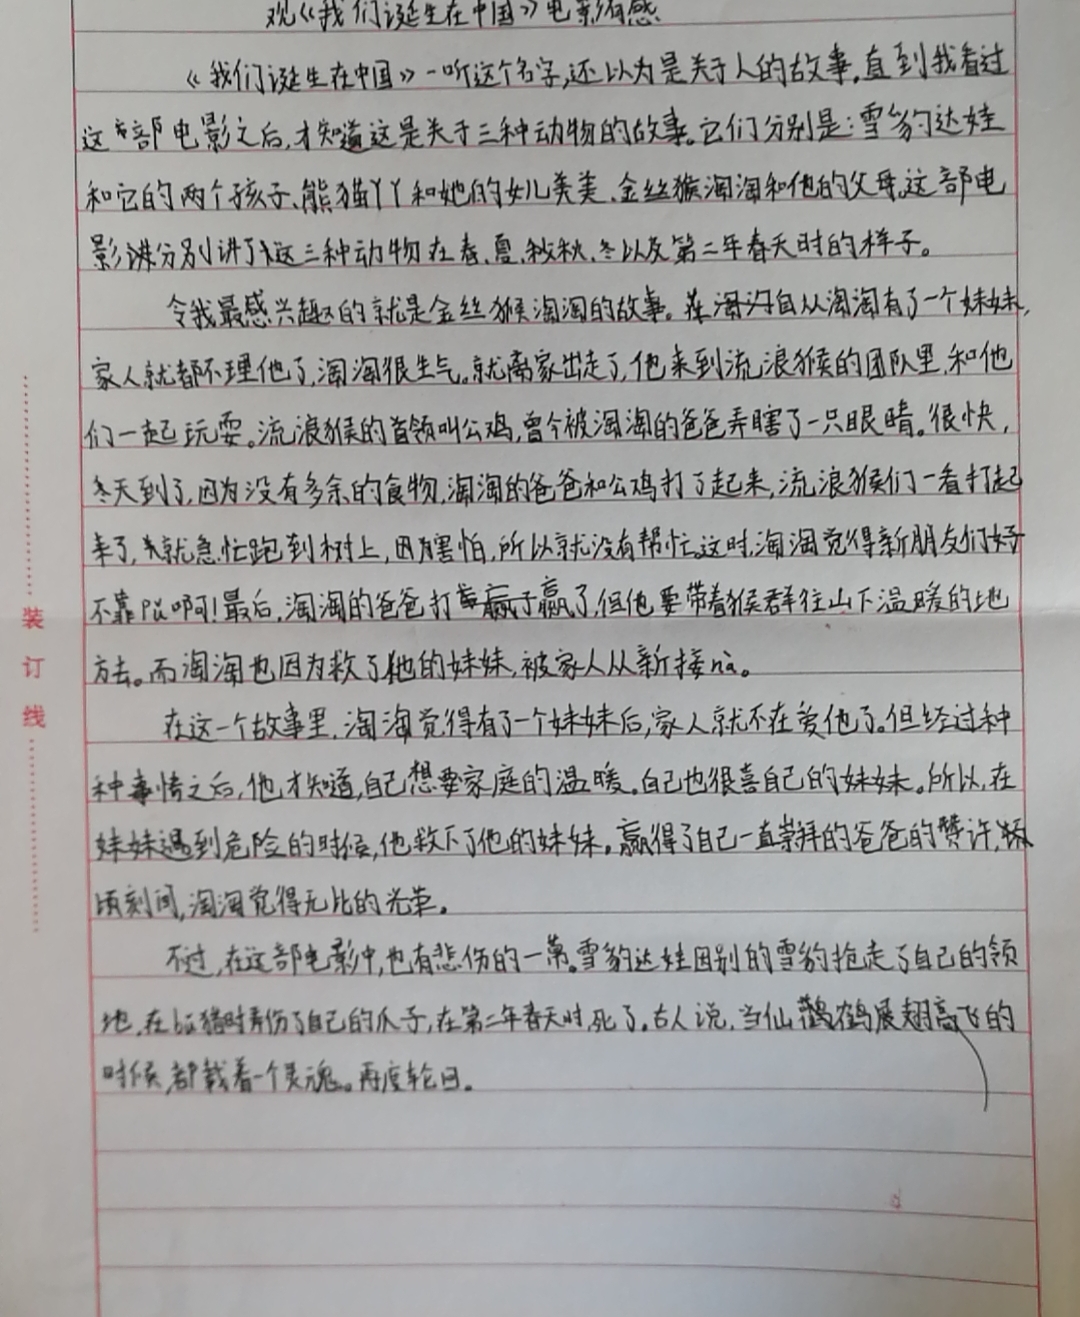 观《我们诞生在中国》电影有感
《我们诞生在中国》一听这个名字,还以为是关于人的故事。直到我看过
这部电影之后,才知道这是关于三种动物的故事。它们分别是:雪豹达娃
和它的两个孩子、熊猫丫丫和她的女儿美美、金丝猴淘淘和他的父母。这部电
影分别讲了这三种动物在春、夏、秋、冬以及第二年春天时的样子。
令我最感兴趣的就是金丝猴淘淘的故事。自从淘淘有了一个妹妹,
家人就都不理他了,淘淘很生气。就离家出走了,他来到流浪猴的团队里,和他
们一起玩耍。流浪猴的首领叫公鸡,曾今被淘淘的爸爸弄瞎了一只眼睛。很快,
冬天到了,因为没有多余的食物,淘淘的爸爸和公鸡打了起来,流浪猴们一看打起
来了,就急忙跑到树上,因为害怕,所以就没有帮忙。这时,淘淘觉得新朋友们好
不靠pǔ啊!最后,淘淘的爸爸打赢了,但他要带着猴群往山下温暖的地
方去。而淘淘也因为救了他的妹妹,被家人从新接nà。
在这一个故事里,淘淘觉得有了一个妹妹后,家人就不在爱他了。但经过种
种事情之后,他才知道,自己想要家庭的温暖。自己也很喜自己的妹妹。所以,在
妹妹遇到危险的时候,他救下了他的妹妹。赢得了自己一直崇拜的爸爸的赞许,
顷刻间,淘淘觉得无比的光荣。
不过,在这部电影中,也有悲伤的一幕。雪豹达娃因别的雪豹抢走了自己的领
地,在bǔ猎时弄伤了自己的爪子,在第二年春天时,死了。古人说,当仙鹤展翅高飞的
时候,都载着一个灵魂。再度轮回。
装订线